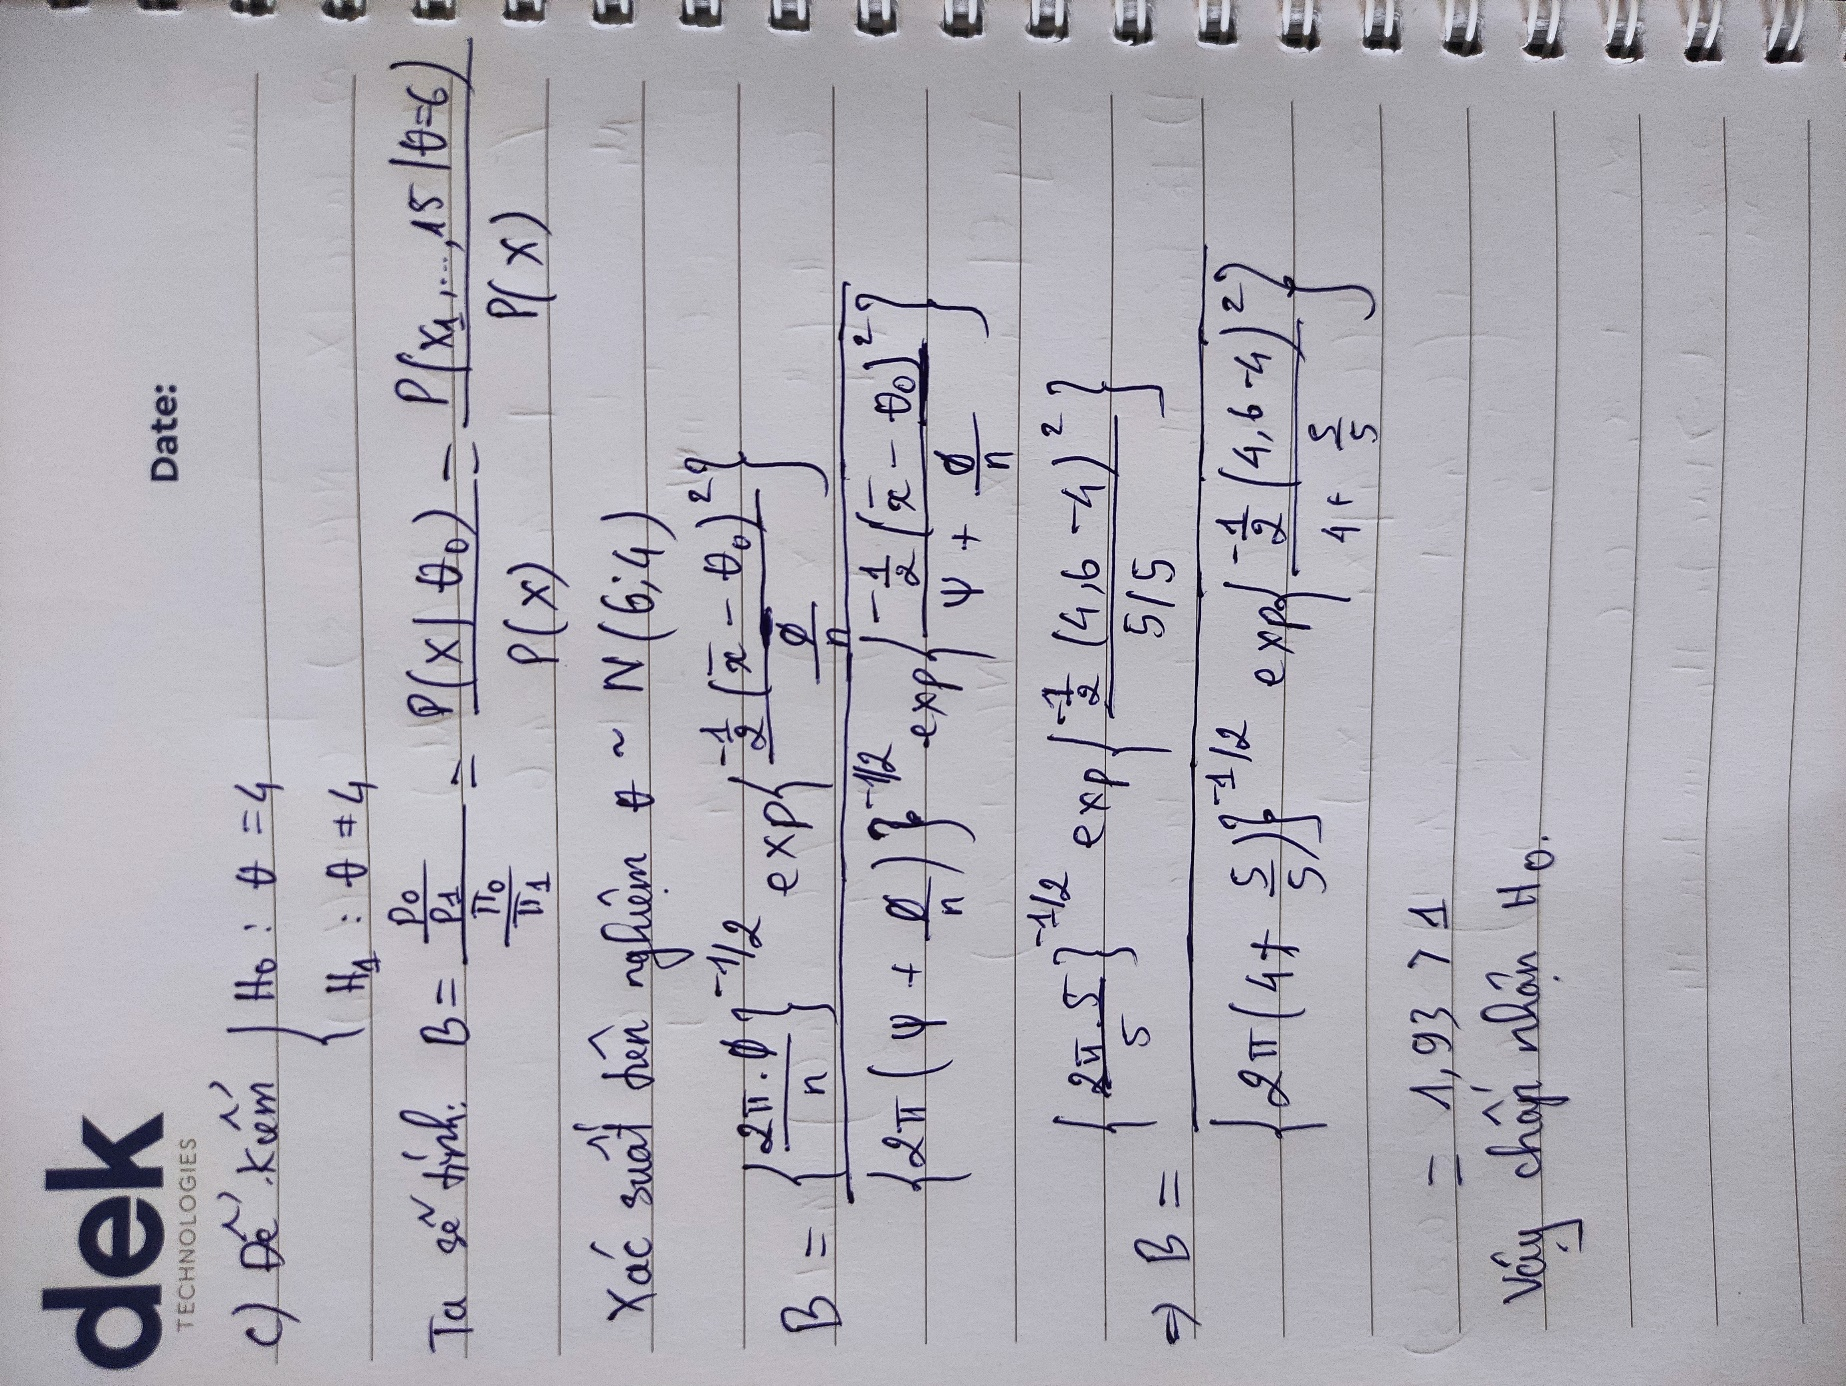 dek
TECHNOLOGIES
Date:
c) Để kiểm { H₀ : θ = 4
H₁ : θ ≠ 4
Ta sẽ tính: B = (p₀/p₁)/(π₀/π₁) = P(x|θ₀)/P(x) = P(x₁,...,15|θ=6)/P(x)
Xác suất tiên nghiệm θ ~ N(6;4)
B = {2π.φ/n}^-1/2 exp{-1/2 (x̄ - θ₀)²/(φ/n)}
{2π(ψ + φ/n)}^-1/2 exp{-1/2 (x̄ - θ₀)²/(ψ + φ/n)}
⇒ B = {2π.5/5}^-1/2 exp{-1/2 (4,6 - 4)²/(5/5)}
{2π(4 + 5/5)}^-1/2 exp{-1/2 (4,6 - 4)²/(4 + 5/5)}
= 1,93 > 1
Vậy chấp nhận H₀.